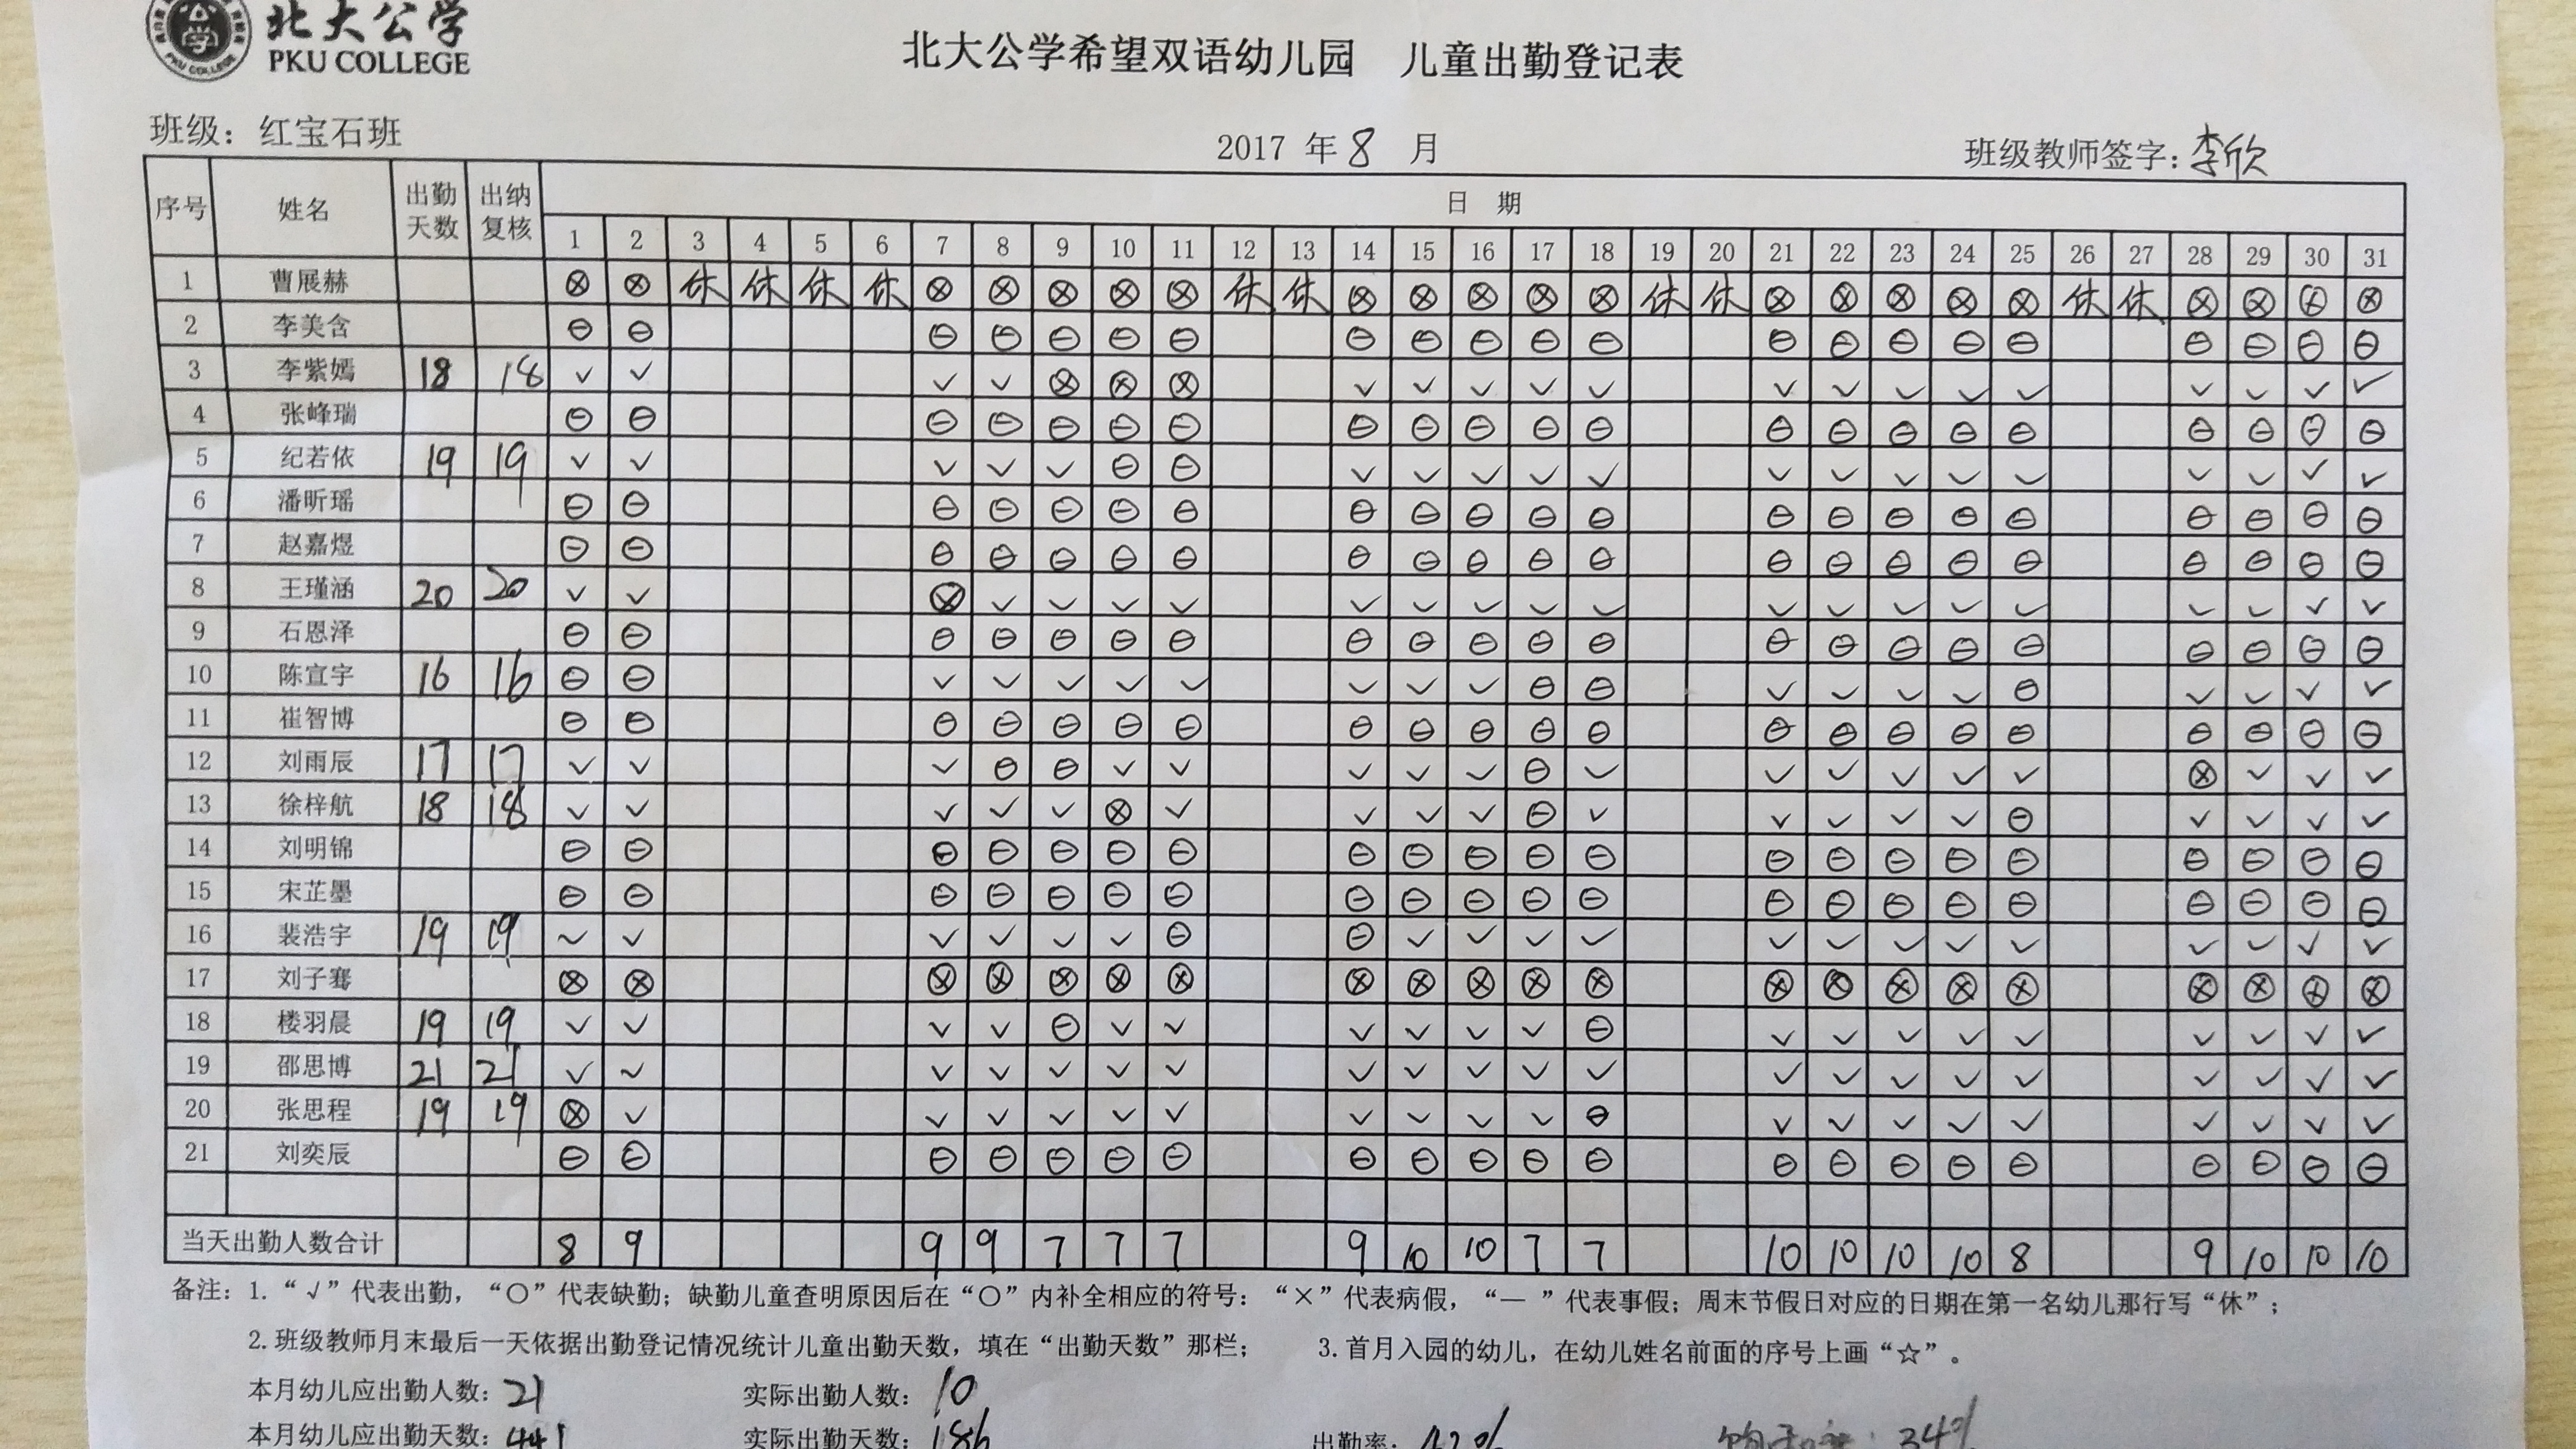 北大公学
PKU COLLEGE
北大公学希望双语幼儿园 儿童出勤登记表
班级：红宝石班 2017 年 8 月 班级教师签字：李欣
序号 姓名 出勤天数 出纳复核 日 期
1 2 3 4 5 6 7 8 9 10 11 12 13 14 15 16 17 18 19 20 21 22 23 24 25 26 27 28 29 30 31
1 曹展赫 ⊗ ⊗ 休 休 休 休 ⊗ ⊗ ⊗ ⊗ ⊗ 休 休 ⊗ ⊗ ⊗ ⊗ ⊗ 休 休 ⊗ ⊗ ⊗ ⊗ ⊗ 休 休 ⊗ ⊗ ⊗ ⊗
2 李美含 ⊖ ⊖ ⊖ ⊖ ⊖ ⊖ ⊖ ⊖ ⊖ ⊖ ⊖ ⊖ ⊖ ⊖ ⊖ ⊖ ⊖ ⊖ ⊖ ⊖ ⊖
3 李紫嫣 18 18 √ √ √ √ ⊗ ⊗ ⊗ √ √ √ √ √ √ √ √ √ √ √ √ √ √
4 张峰瑞 ⊖ ⊖ ⊖ ⊖ ⊖ ⊖ ⊖ ⊖ ⊖ ⊖ ⊖ ⊖ ⊖ ⊖ ⊖ ⊖ ⊖ ⊖ ⊖ ⊖ ⊖
5 纪若依 19 19 √ √ √ √ √ ⊖ ⊖ √ √ √ √ √ √ √ √ √ √ √ √ √ √
6 潘昕瑶 ⊖ ⊖ ⊖ ⊖ ⊖ ⊖ ⊖ ⊖ ⊖ ⊖ ⊖ ⊖ ⊖ ⊖ ⊖ ⊖ ⊖ ⊖ ⊖ ⊖ ⊖
7 赵嘉煜 ⊖ ⊖ ⊖ ⊖ ⊖ ⊖ ⊖ ⊖ ⊖ ⊖ ⊖ ⊖ ⊖ ⊖ ⊖ ⊖ ⊖ ⊖ ⊖ ⊖ ⊖
8 王瑾涵 20 20 √ √ ⊗ √ √ √ √ √ √ √ √ √ √ √ √ √ √ √ √ √ √
9 石恩泽 ⊖ ⊖ ⊖ ⊖ ⊖ ⊖ ⊖ ⊖ ⊖ ⊖ ⊖ ⊖ ⊖ ⊖ ⊖ ⊖ ⊖ ⊖ ⊖ ⊖ ⊖
10 陈宣宇 16 16 ⊖ ⊖ √ √ √ √ √ √ √ √ ⊖ ⊖ √ √ √ √ ⊖ √ √ √ √
11 崔智博 ⊖ ⊖ ⊖ ⊖ ⊖ ⊖ ⊖ ⊖ ⊖ ⊖ ⊖ ⊖ ⊖ ⊖ ⊖ ⊖ ⊖ ⊖ ⊖ ⊖ ⊖
12 刘雨辰 17 17 √ √ √ ⊖ ⊖ √ √ √ √ √ ⊖ √ √ √ √ √ √ ⊗ √ √ √
13 徐梓航 18 18 √ √ √ √ √ ⊗ √ √ √ √ ⊖ √ √ √ √ √ ⊖ √ √ √ √
14 刘明锦 ⊖ ⊖ ⊖ ⊖ ⊖ ⊖ ⊖ ⊖ ⊖ ⊖ ⊖ ⊖ ⊖ ⊖ ⊖ ⊖ ⊖ ⊖ ⊖ ⊖ ⊖
15 宋芷墨 ⊖ ⊖ ⊖ ⊖ ⊖ ⊖ ⊖ ⊖ ⊖ ⊖ ⊖ ⊖ ⊖ ⊖ ⊖ ⊖ ⊖ ⊖ ⊖ ⊖ ⊖
16 裴浩宇 19 19 √ √ √ √ √ √ ⊖ ⊖ √ √ √ √ √ √ √ √ √ √ √ √ √
17 刘子骞 ⊗ ⊗ ⊗ ⊗ ⊗ ⊗ ⊗ ⊗ ⊗ ⊗ ⊗ ⊗ ⊗ ⊗ ⊗ ⊗ ⊗ ⊗ ⊗ ⊗ ⊗
18 楼羽晨 19 19 √ √ √ √ ⊖ √ √ √ √ √ √ ⊖ √ √ √ √ √ √ √ √ √
19 邵思博 21 21 √ √ √ √ √ √ √ √ √ √ √ √ √ √ √ √ √ √ √ √ √
20 张思程 19 19 ⊗ √ √ √ √ √ √ √ √ √ √ ⊖ √ √ √ √ √ √ √ √ √
21 刘奕辰 ⊖ ⊖ ⊖ ⊖ ⊖ ⊖ ⊖ ⊖ ⊖ ⊖ ⊖ ⊖ ⊖ ⊖ ⊖ ⊖ ⊖ ⊖ ⊖ ⊖ ⊖
当天出勤人数合计 8 9 9 9 7 7 7 9 10 10 7 7 10 10 10 10 8 9 10 10 10
备注：1.“√”代表出勤，“○”代表缺勤；缺勤儿童查明原因后在“○”内补全相应的符号：“×”代表病假，“— ”代表事假；周末节假日对应的日期在第一名幼儿那行写“休”；
2.班级教师月末最后一天依据出勤登记情况统计儿童出勤天数，填在“出勤天数”那栏； 3.首月入园的幼儿，在幼儿姓名前面的序号上画“☆”。
本月幼儿应出勤人数：21 实际出勤人数：10
本月幼儿应出勤天数：441 实际出勤天数：186 出勤率：42% 34%